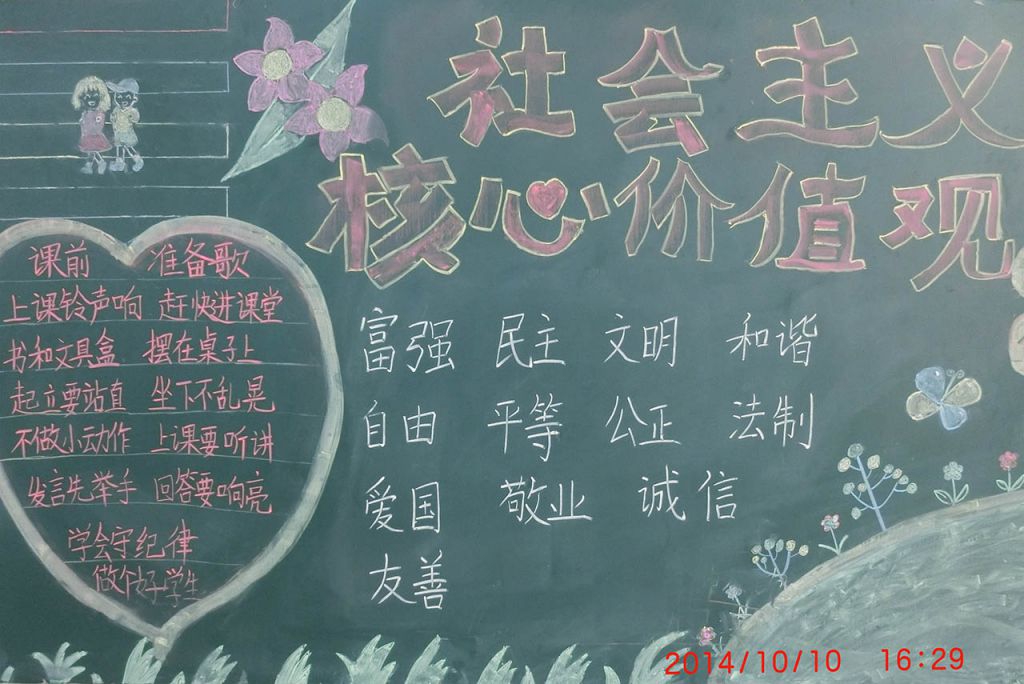 社会主义
核心价值观
课前 准备歌
上课铃声响 赶快进课堂
书和文具盒 摆在桌子上
起立要站直 坐下不乱晃
不做小动作 上课要听讲
发言先举手 回答要响亮
学会守纪律
做个好学生
富强 民主 文明 和谐
自由 平等 公正 法制
爱国 敬业 诚信
友善
2014/10/10 16:29